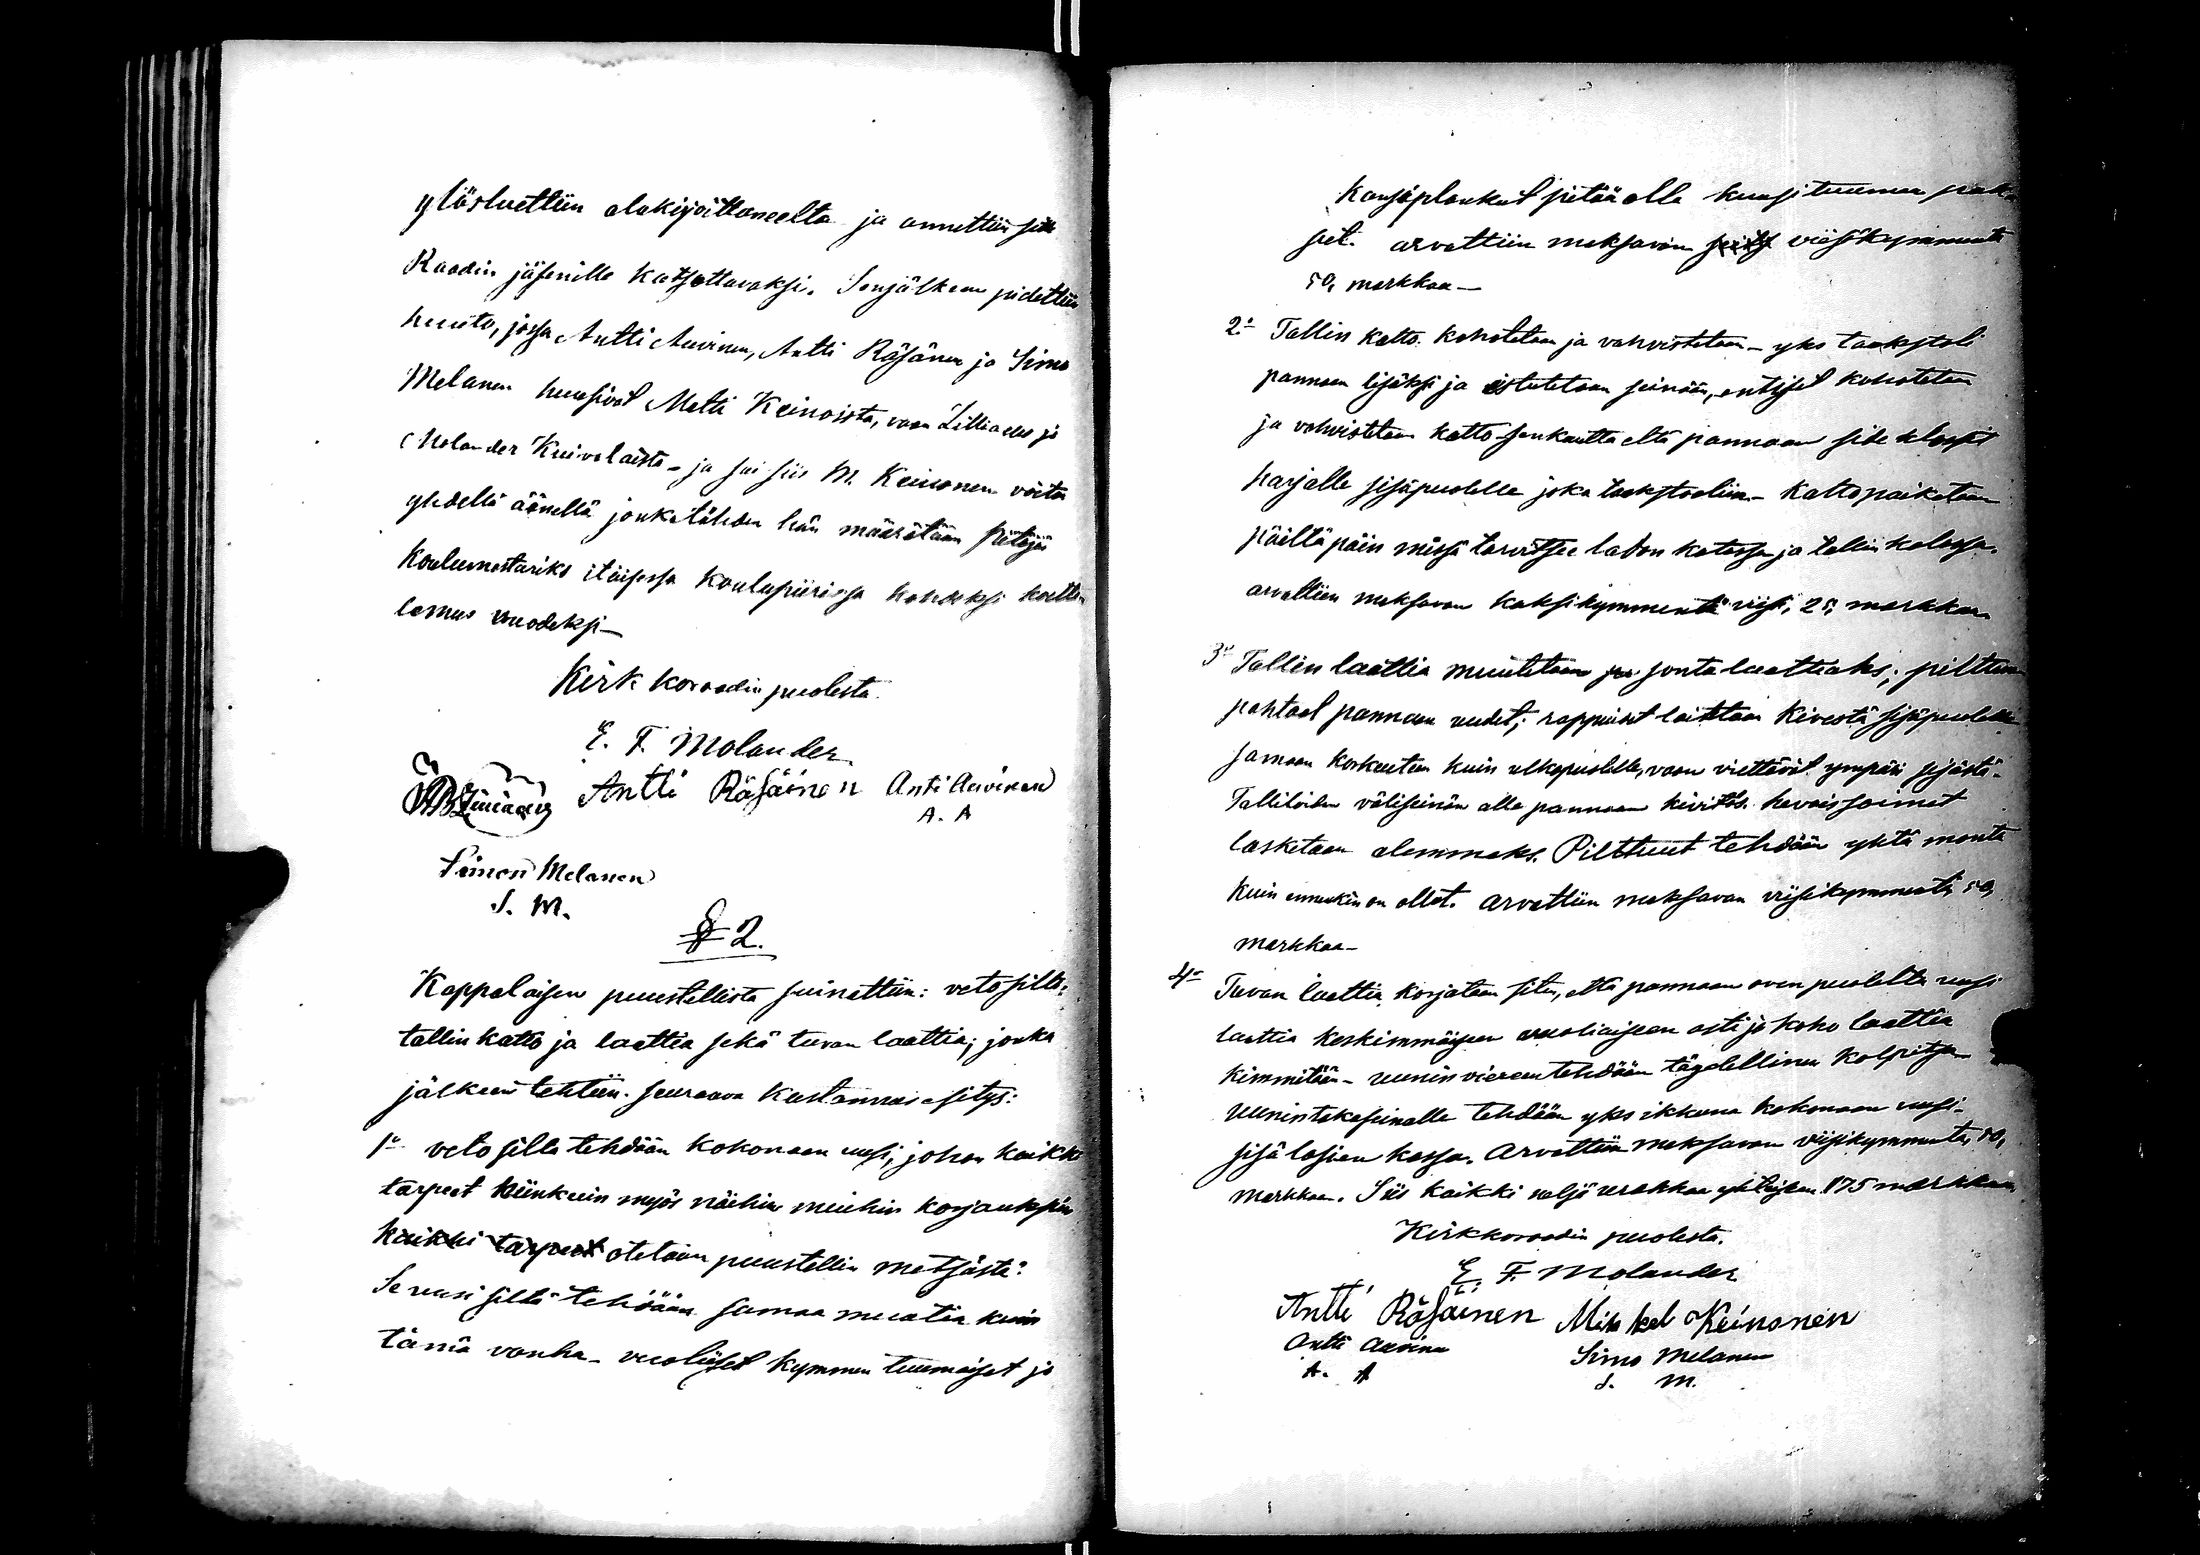 ylösluettiin alakirjoittaneelta ja annettiin sitte
Raadin jäsenille katsottavaksi. Senjälkeen pidettiin
huuto, jossa Antti Auvinen, Antti Räsänen ja Simo
Melanen huusivat Matti Keinoista, vaan Lilliaeus ja
Molander Kuivalaista – ja sai siis M. Keinonen voiton
yhdellä äänellä jonkatähden hän määrätään pitäjän
koulumestariks itäisessä koulupiirissä kahdeksi koette-
lemus vuodeksi –
Kirkkoraadin puolesta
E. F. Molander
Antti Räsäinen Anti Auvinen
A. A
Simon Melanen
S. M.
§ 2.
Kappalaisen puustellista suinattiin: vetosilta,
tallin katto ja laattia sekä tuvan laattia; jonka
jälkeen tehtiin seuraava kustannus esitys:
1o veto silta tehdään kokonaan uusi, johon kaikki
tarpeet niinkuin myös näihin muihin korjauksiin
kaikki tarpeet otetaan puustellin metsästä.
Se uusi silta tehdään samaa muotia kuin
tämä vanha – vuoliaiset kymmen tuumaiset ja
kansiplankut pitää olla kuusi tuumaa pak-
sut. arvattiin maksavan viisikymmentä
50, markkaa –
2o Tallin katto kohotetaan ja vahvistetaan – yks taakstoli
pannaan lisäksi ja istutetaan seinään, entiset kohotetaan
ja vahvistetaan katto senkautta että pannaan side klossit
harjalle sisäpuolelle joka taakstooliin – Katto paikataan
päiltäpäin missä tarvitsee ladon katossa ja tallin katossa.
arvattiin maksavan kaksikymmentä viisi, 25 markkaa
3o Tallin laattia muutetaan sontalaattiaks; pilttuun
pahtaat pannaan uudet; rappuiset laitetaan kivestä sisäpuolelle
samaan korkeuteen kuin ulkopuolelle, vaan viettävät ympäri sisästä.
Talliloiden väliseinän alle pannaan kivitös. hevoissoimet
lasketaan alemmaks. Pilttuut tehdään yhtä monta
kuin ennenkin on ollut. arvattiin maksavan viisikymmentä 50,
markkaa –
4o Tuvan laattia korjataan siten, että pannaan oven puolelta uusi
laattia keskimmäiseen vuoliaiseen asti ja koko laattia
kimmitään – uunin viereen tehdään täydellinen kolpitsa
uunintakaseinälle tehdään yks ikkuna kokonaan uusi
sisä lasien kassa. Arvattiin maksavan viisikymmentä, 50,
markkaa. Siis kaikki neljä urakkaa yhteisesti 175 markkaa
Kirkkoraadin puolesta.
E. F. Molander
Antti Räsäinen Mikkel Keinonen
Antti Auvinen Simo Melanen
A. A S. M.